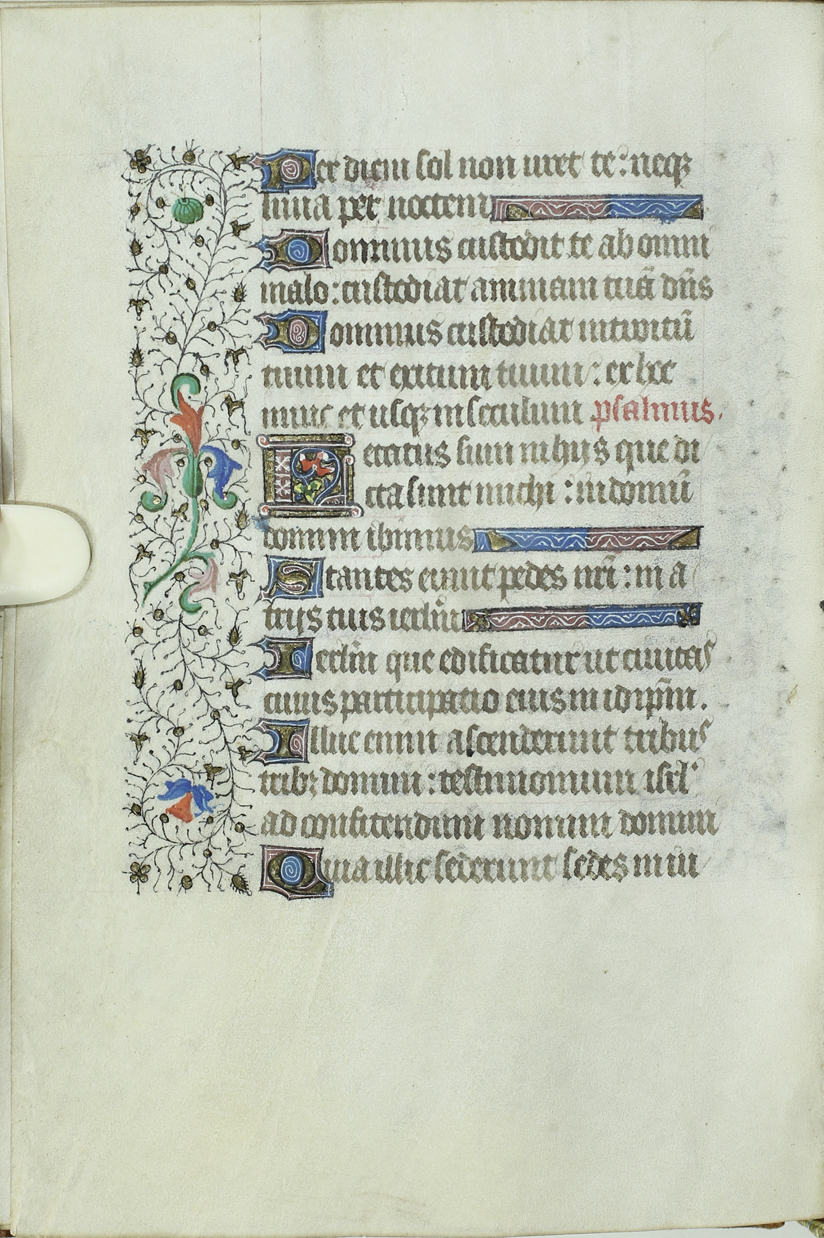 Per diem sol non uret te : neq₃
luna per noctem
Dominus custodit te ab omni
malo : custodiat animam tuā dn̄s
Dominus custodiat introitū
tuum et exitum tuum : ex hoc
nunc et usq₃ in seculum psalmus.
Letatus sum in hijs que di
cta sunt michi : in domū
domini ibimus
Stantes erunt pedes nr̄i : in a
trijs tuis ierlm̄
Ierlm̄ que edificatur ut ciuitas
cuius participatio eius in idip̄m .
Illuc enim ascenderunt tribus
trib₃ domini : testimonium isrl'
ad confitendum nomini domini
Quia illic sederunt sedes in iu